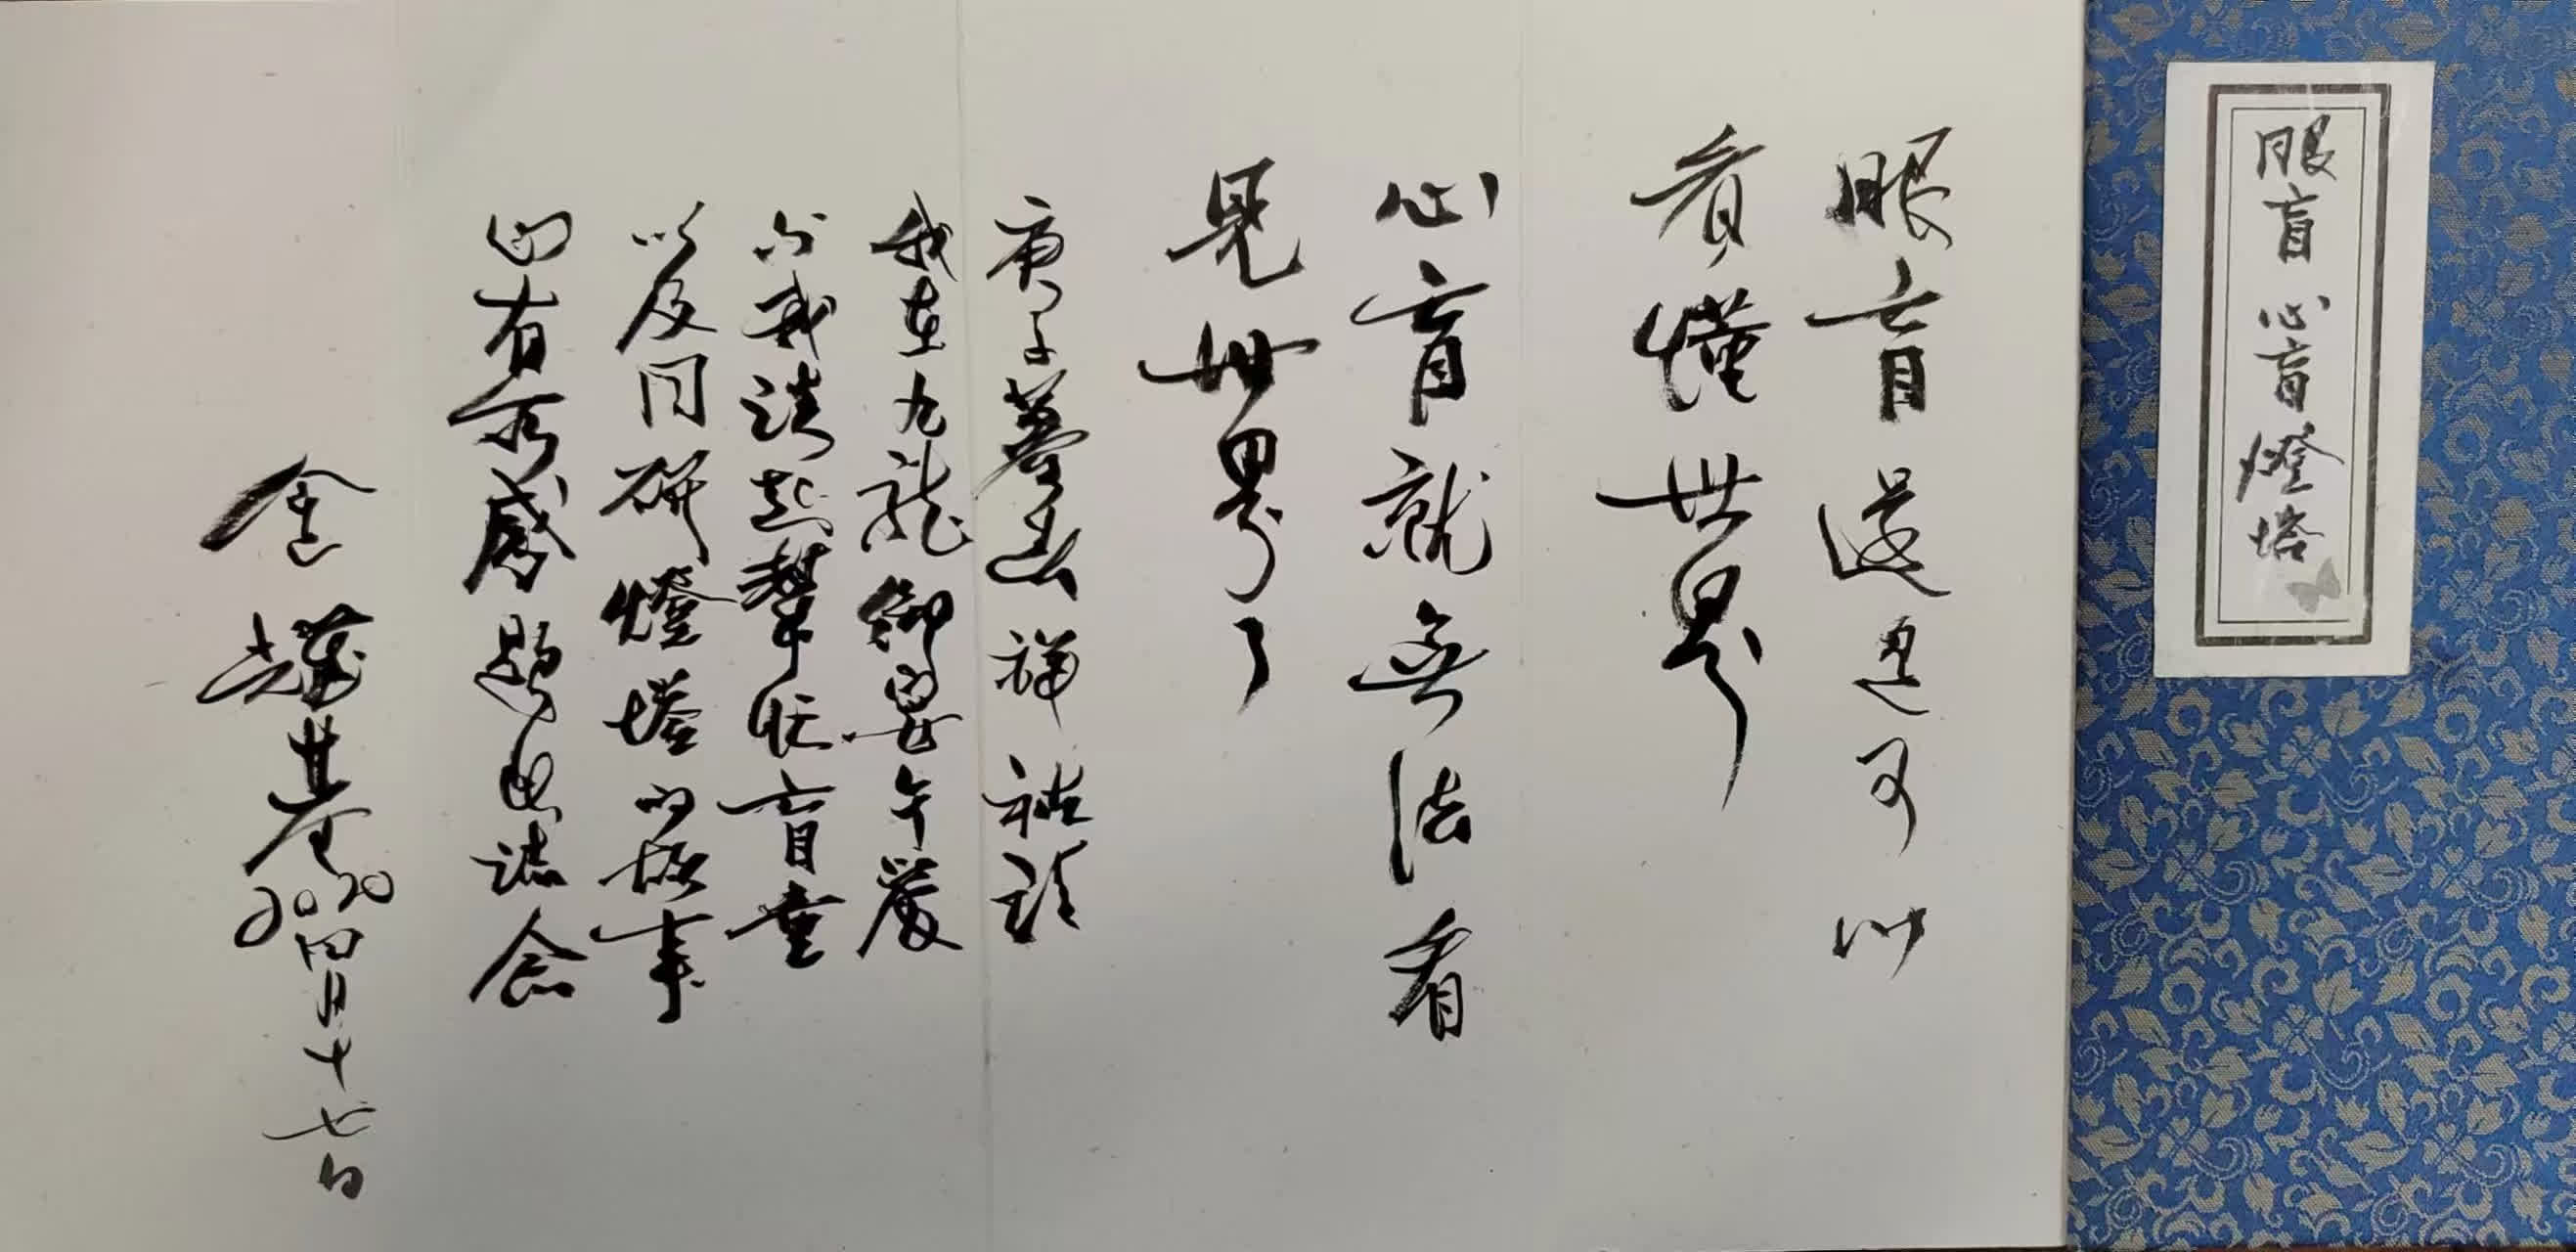 眼盲 心盲 燈塔
眼盲還是可以
看懂世界
心盲就無法看
見世界了
庚子暮春祥祺請
我在九龍御宴午餐
我談起幫忙盲童
以及同研燈塔的故事
有所感題此誌念
金耀基
2020四月十七日